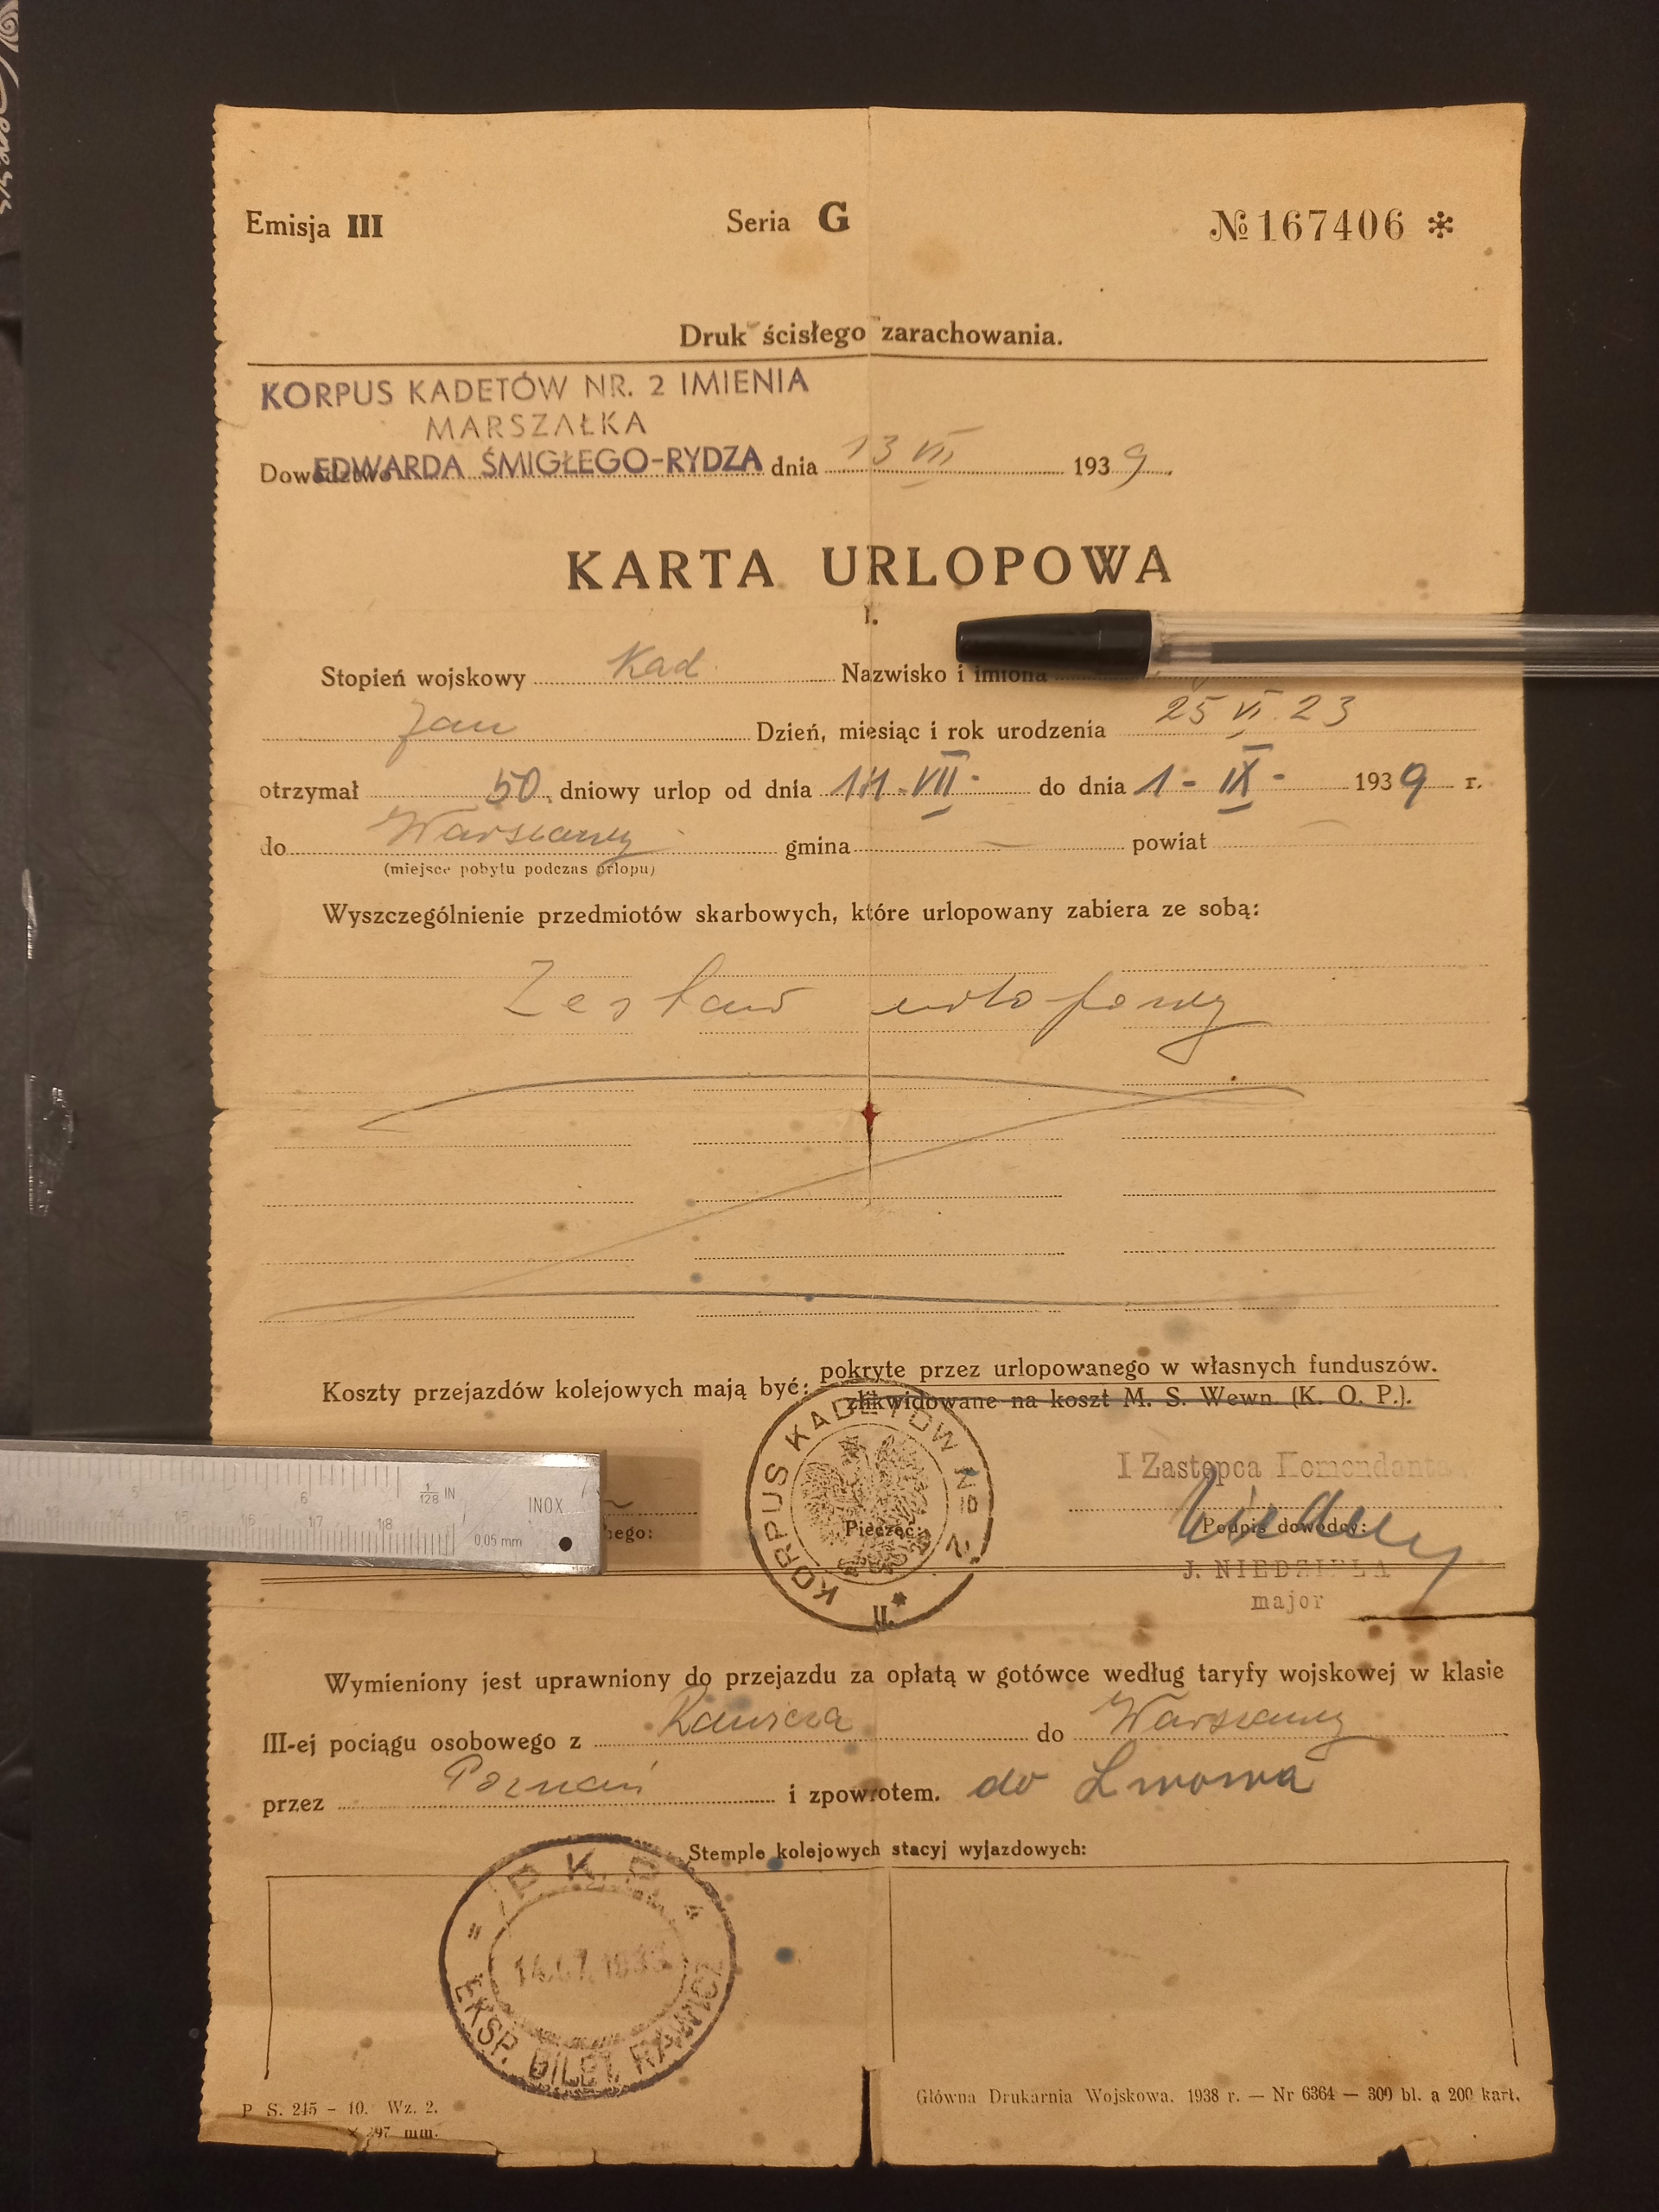 Emisja III Seria G № 167406 *
Druk ścisłego zarachowania.
KORPUS KADETÓW NR. 2 IMIENIA
MARSZAŁKA
EDWARDA ŚMIGŁEGO-RYDZA
Dowództwo dnia 13 VII 1939.
KARTA URLOPOWA
I.
Stopień wojskowy Kad. Nazwisko i imiona
Jan Dzień, miesiąc i rok urodzenia 25 VI 23
otrzymał 50. dniowy urlop od dnia 14. VII. do dnia 1 - IX - 1939 r.
do Warszawy gmina — powiat —
(miejsce pobytu podczas urlopu)
Wyszczególnienie przedmiotów skarbowych, które urlopowany zabiera ze sobą:
Zestaw urlopowy
Koszty przejazdów kolejowych mają być: pokryte przez urlopowanego w własnych funduszów.
zlikwidowane na koszt M. S. Wewn. (K. O. P.).
KORPUS KADETÓW № 2.
I Zastępca Komendanta
Pieczęć:
Podpis dowódcy:
J. NIEDZIELA
major
5 6 1/128 IN INOX
13 14 15 16 17 18 0,05 mm
nego:
II.
Wymieniony jest uprawniony do przejazdu za opłatą w gotówce według taryfy wojskowej w klasie
III-ej pociągu osobowego z Rawicza do Warszawy
przez Poznań i zpowrotem. do Lwowa
Stemple kolejowych stacyj wyjazdowych:
P.K.P.
14.07.1939
EKSP. BILET. RAWICZ
P. S. 245 – 10. Wz. 2.
× 297 mm.
Główna Drukarnia Wojskowa. 1938 r. — Nr 6364 — 300 bl. a 200 kart.